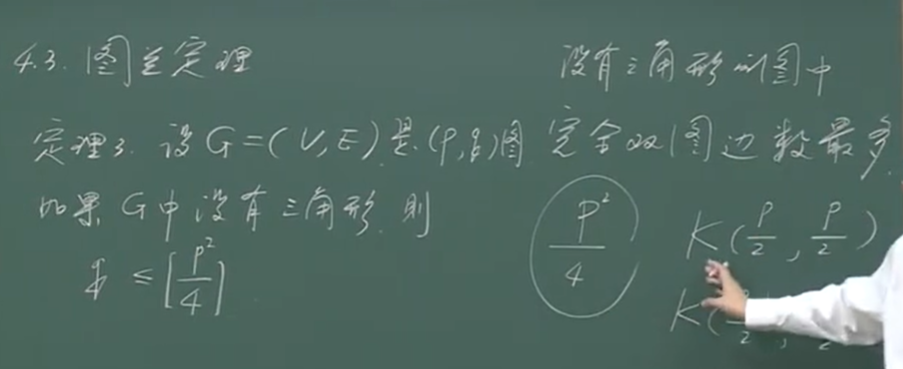 4.3. 图兰定理
定理3. 设G=(V,E)是(p,q)图
如果G中没有三角形,则
q ≤ [p²/4]
没有三角形的图中
完全双图边数最多.
p²/4
K(p/2, p/2)
K(